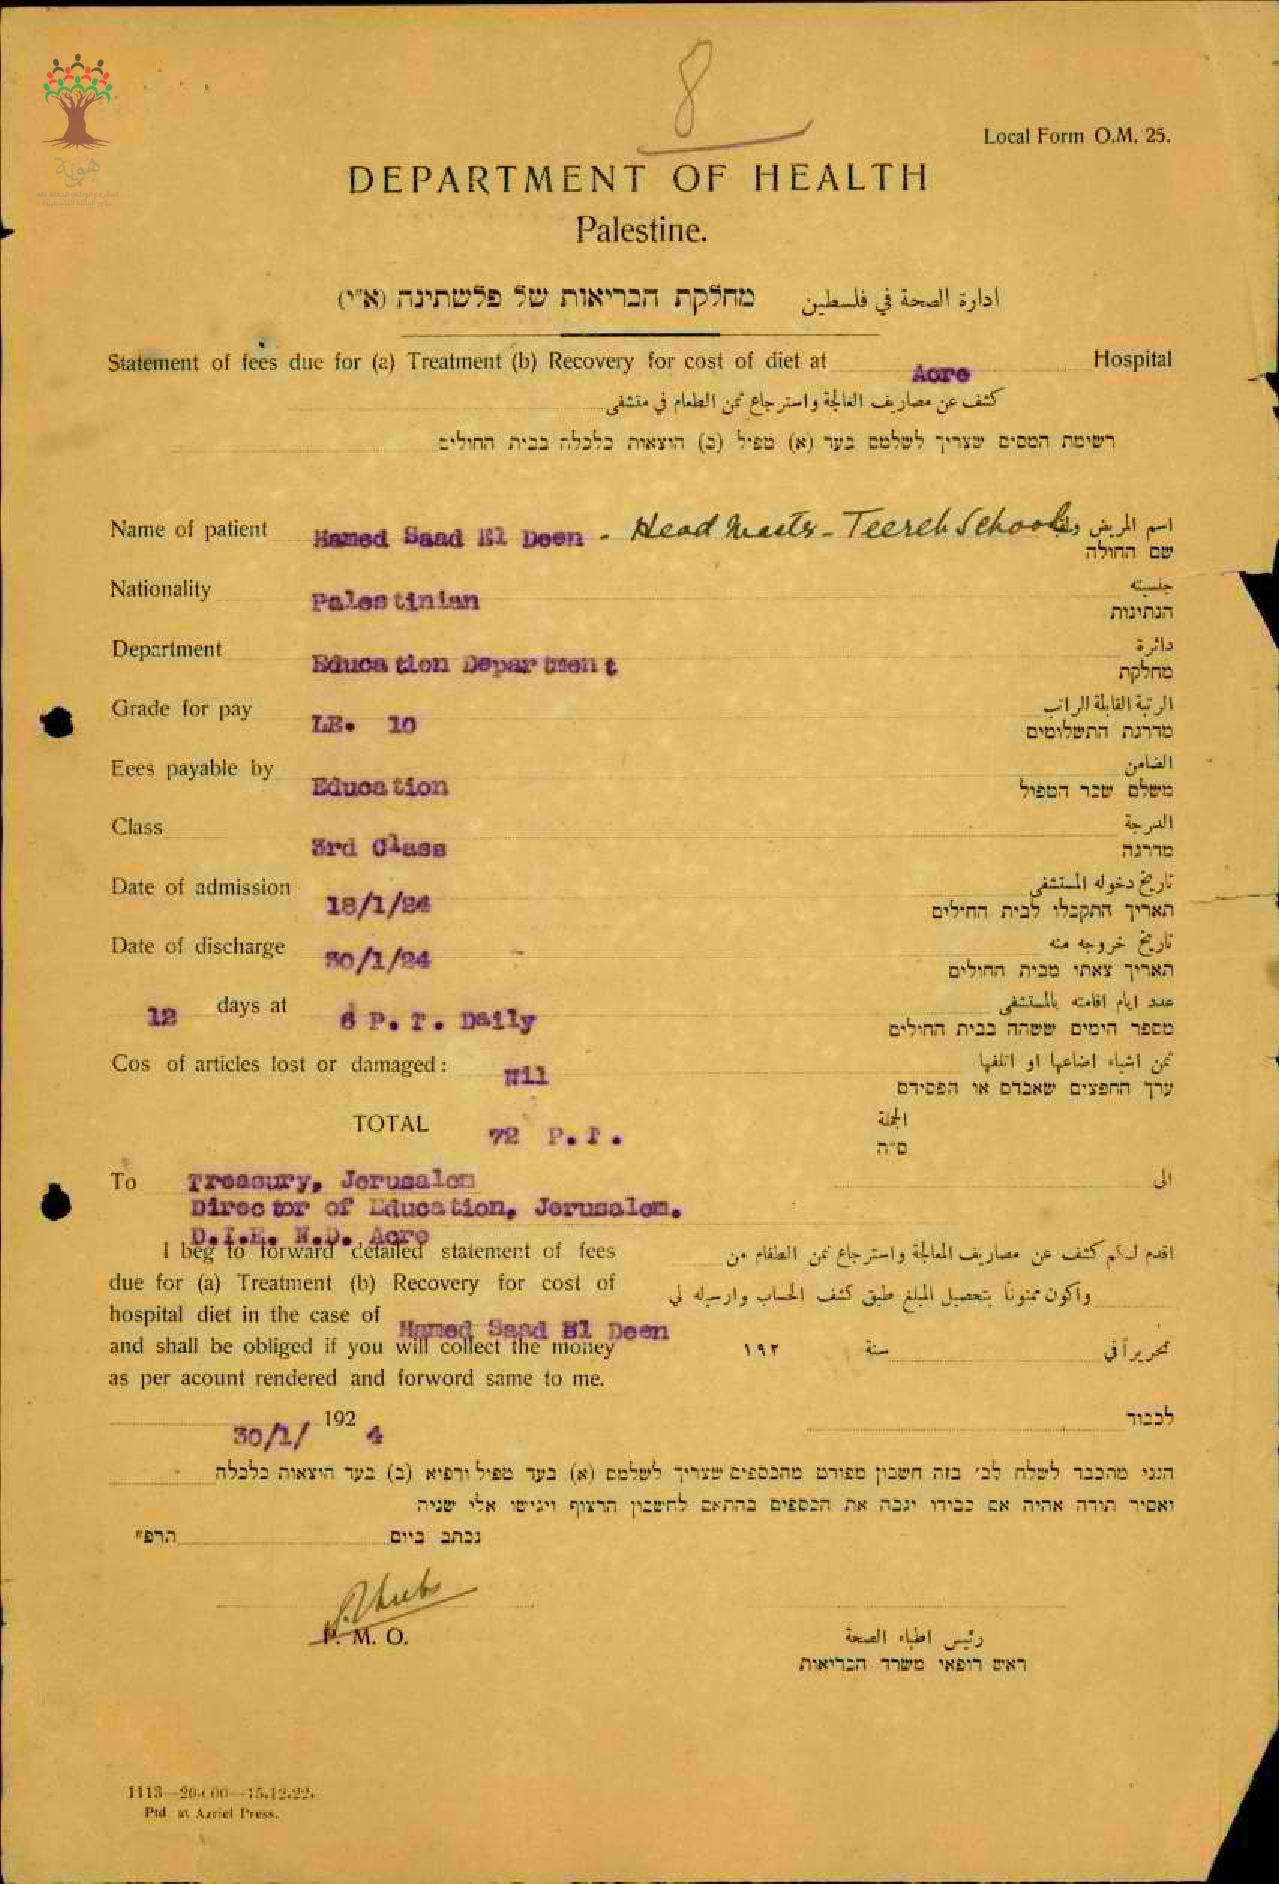 8
Local Form O.M. 25.
DEPARTMENT OF HEALTH
Palestine.
מחלקת הבריאות של פלשתינה (א"י) ادارة الصحة في فلسطين
Statement of fees due for (a) Treatment (b) Recovery for cost of diet at Acre Hospital
كشف عن مصاريف المعالجة واسترجاع ثمن الطعام في مستشفى
רשימת המסים שצריך לשלמם בעד (א) טפול (ב) הוצאות כלכלה בבית החולים
Name of patient Hamed Saad El Deen - Head Master - Teereh School اسم المريض
שם החולה
Nationality Palestinian جنسيته
הנתינות
Department Education Department دائرة
מחלקת
Grade for pay LE. 10 الرتبة القابلة الراتب
מדרגת התשלומים
Eees payable by Education الضامن
משלם שכר הטפול
Class 3rd Class الدرجة
מדרגה
Date of admission 18/1/24 تاريخ دخوله المستشفى
תאריך התקבלו לבית החולים
Date of discharge 30/1/24 تاريخ خروجه منه
תאריך צאתו מבית החולים
12 days at 6 P.T. Daily عدد ايام اقامته بالمستشفى
מספר הימים ששהה בבית החולים
Cos of articles lost or damaged: Nil ثمن اشياء اضاعها او اتلفها
ערך החפצים שאבדם או הפסידם
TOTAL 72 P.T. الجملة
ס"ה
To Treasury, Jerusalem الى
Director of Education, Jerusalem.
D.I.E. N.D. Acre
I beg to forward detailed statement of fees اقدم لكم كشف عن مصاريف المعالجة واسترجاع ثمن الطعام من
due for (a) Treatment (b) Recovery for cost of
hospital diet in the case of Hamed Saad El Deen واكون ممنوناً بتحصيل المبلغ طبق كشف الحساب وارسله لي
and shall be obliged if you will collect the money تحريراً في سنة ١٩٢
as per acount rendered and forword same to me.
30/1/ 192 4 לכבוד
הנני מתכבד לשלח לכ' בזה חשבון מפורט מהכספים שצריך לשלמם (א) בעד טפול ורפוא (ב) בעד הוצאות כלכלה
ואסיר תודה אהיה אם כבודו יגבה את הכספים בהתאם לחשבון הרצוף ויגישו אלי שניה
נכתב ביום תרפ"
P. M. O. رئيس اطباء الصحة
ראש רופאי משרד הבריאות
1113—20.000—15.12.22.
Ptd at Azriel Press.
هوية